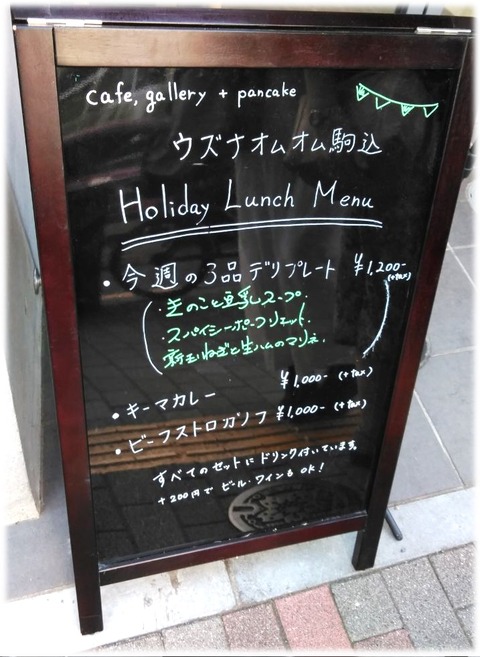 cafe, gallery + pancake
ウズナオムオム駒込
Holiday Lunch Menu
・今週の3品デリプレート ¥1,200- (+tax)
・きのこと豆乳スープ
・スパイシーポークリエット
・新玉ねぎと生ハムのマリネ
・キーマカレー ¥1,000- (+tax)
・ビーフストロガノフ ¥1,000- (+tax)
すべてのセットにドリンク付いています。
+200円でビール・ワインもOK!